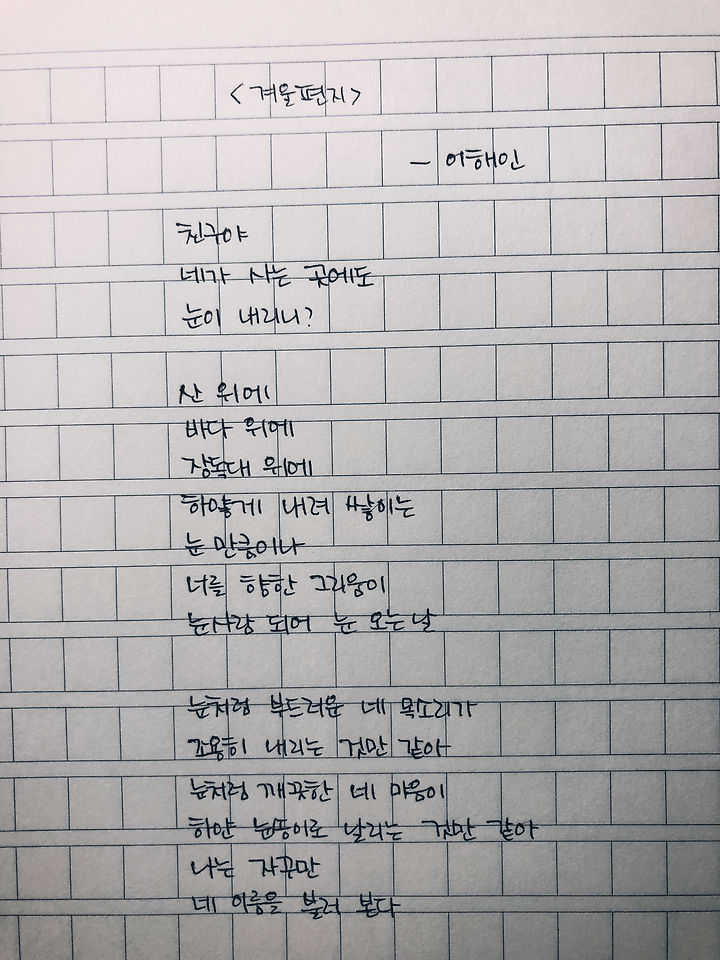 <겨울편지>
- 이해인
친구야
네가 사는 곳에도
눈이 내리니?
산 위에
바다 위에
장독대 위에
하얗게 내려 쌓이는
눈 만큼이나
너를 향한 그리움이
눈사람 되어 눈 오는 날
눈처럼 부드러운 네 목소리가
조용히 내리는 것만 같아
눈처럼 깨끗한 네 마음이
하얀 눈뭉이로 날리는 것만 같아
나는 자꾸만
네 이름을 불러 본다